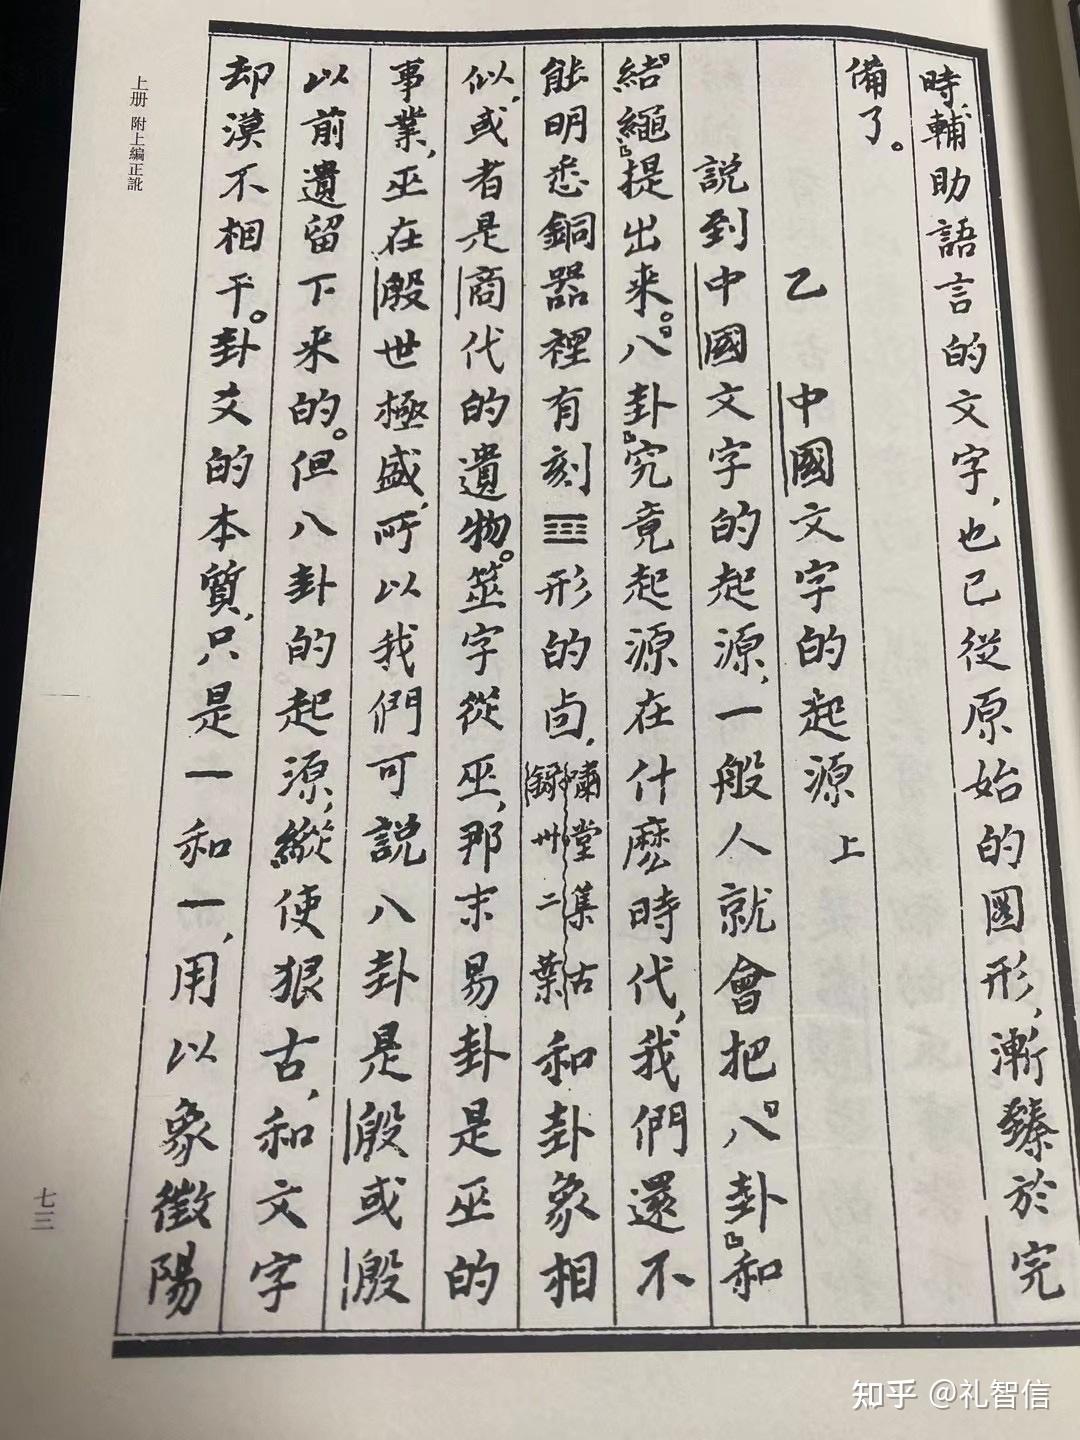 時，輔助語言的文字，也已從原始的圖形，漸臻於完
備了。
乙　中國文字的起源　上
說到中國文字的起源，一般人就會把「八卦」和
「結繩」提出来。「八卦」究竟起源在什麼時代，我們還不
能明悉銅器裡有刻☰形的卣，嘯堂集古錄卅二葉和卦象相
似，或者是商代的遺物。筮字從巫，那末易卦是巫的
事業，巫在殷世極盛，所以我們可說八卦是殷或殷
以前遺留下来的。但八卦的起源，縱使狠古，和文字
却漠不相干。卦爻的本質，只是一和--，用以象徵陽
上册 附上编正訛
七三
知乎 @礼智信